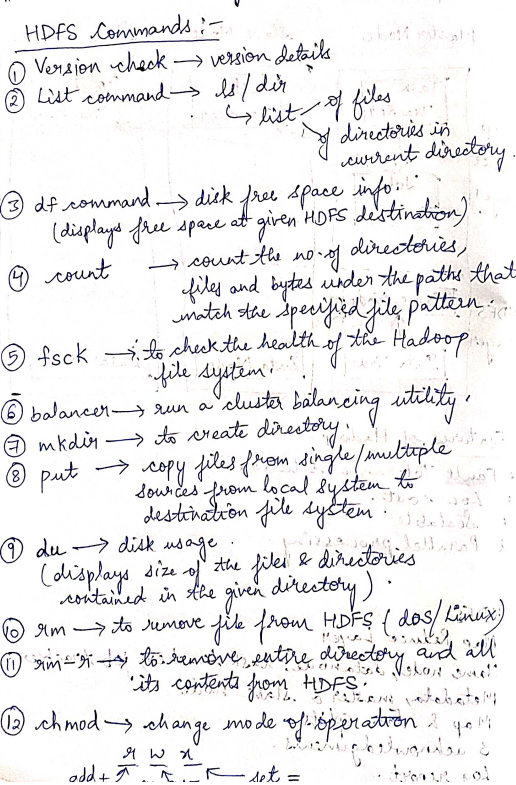 HDFS Commands :-
① Version check → version details
② List command → ls / dir
↳ list of files
of directories in
current directory.
③ df command → disk free space info.
(displays free space at given HDFS destination).
④ count → count the no. of directories,
files and bytes under the paths that
match the specified file pattern.
⑤ fsck → to check the health of the Hadoop
file system.
⑥ balancer → run a cluster balancing utility.
⑦ mkdir → to create directory.
⑧ put → copy files from single/multiple
sources from local system to
destination file system.
⑨ du → disk usage.
(displays size of the files & directories
contained in the given directory).
⑩ rm → to remove file from HDFS (dos/Linux)
⑪ rm-r → to remove entire directory and all
its contents from HDFS.
⑫ chmod → change mode of operation
r w x
add + set =